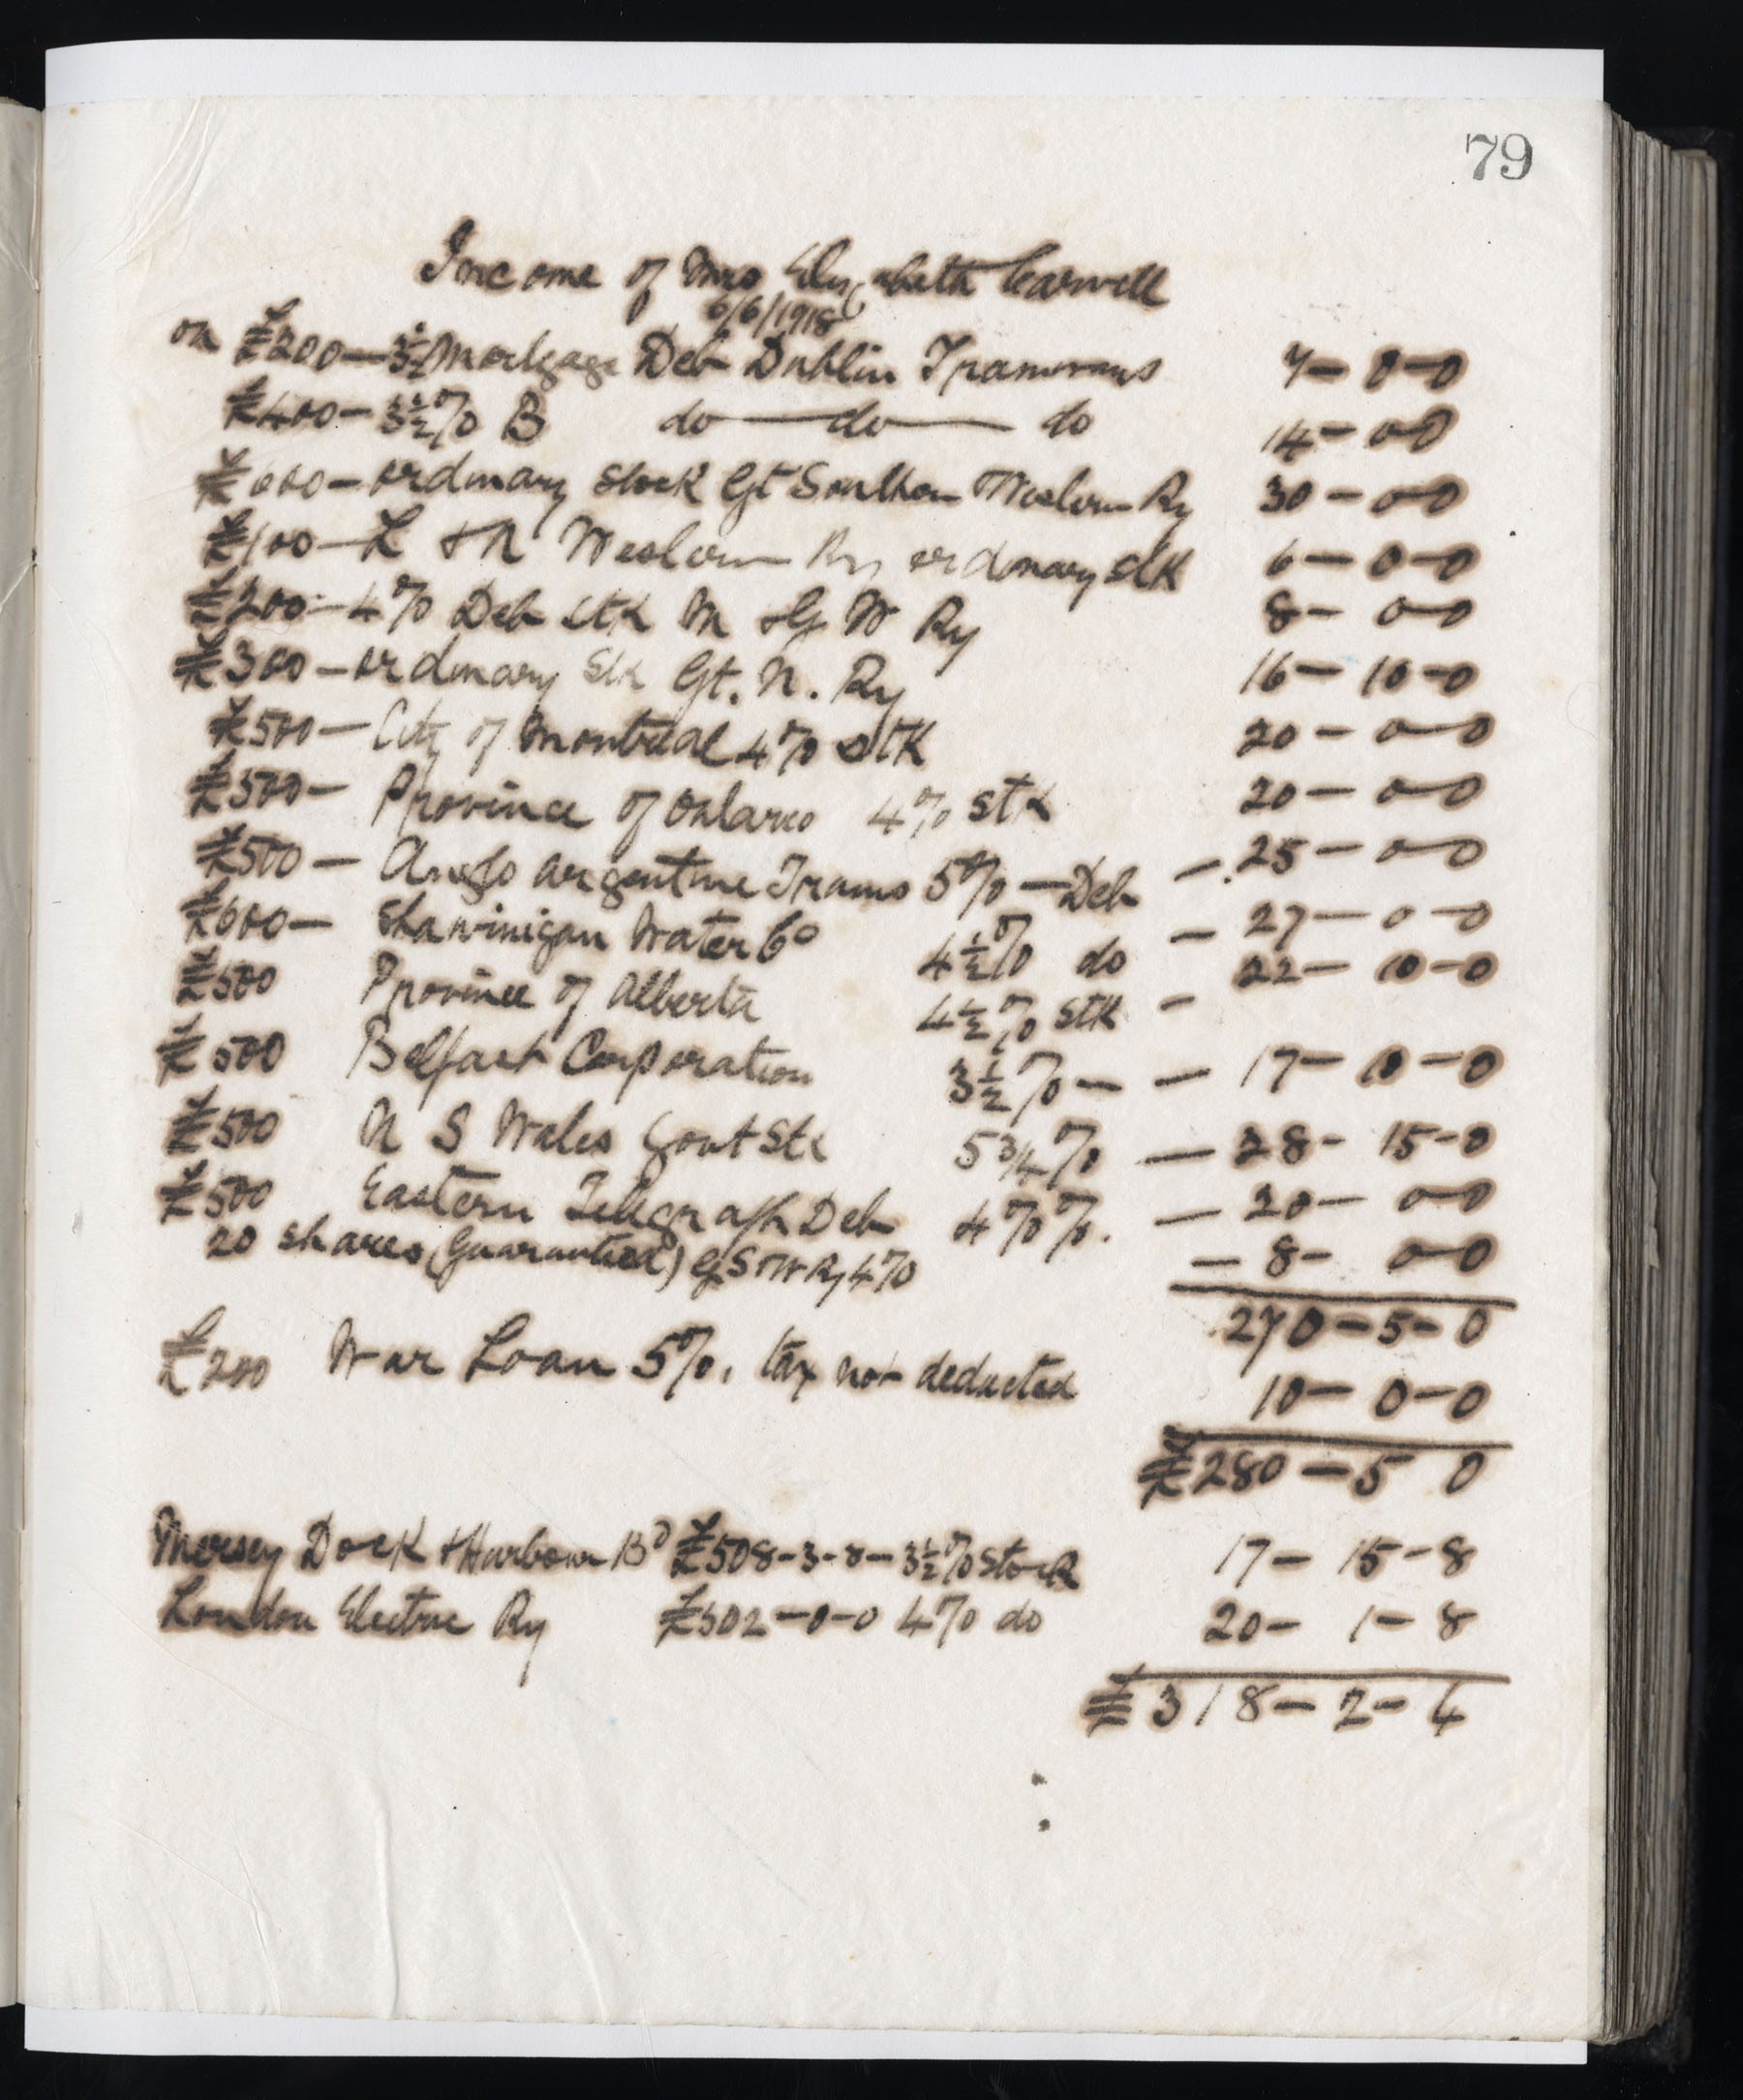 79
Income of Mrs Elizabeth Carvill
6/6/1918
on £200 — 3½ Mortgage Deb Dublin Tramways 7 — 0 — 0
£400 — 3½% B do — do — do 14 — 0 0
£600 — ordinary stock Gt Southern Western Ry 30 — 0 — 0
£100 — L & N Western Ry ordinary stk 6 — 0 — 0
£200 — 4% Deb stk M & G W Ry 8 — 0 — 0
£300 — ordinary Stk Gt. N. Ry 16 — 10 — 0
£500 — City of Montreal 4% stk 20 — 0 — 0
£500 — Province of Ontario 4% stk 20 — 0 — 0
£500 — Anglo argentine Trams 5% — Deb — 25 — 0 — 0
£600 — Shawinigan Water Co 4½% do — 27 — 0 — 0
£500 Province of Alberta 4½% stk — 22 — 10 — 0
£500 Belfast Corporation 3½% — — 17 — 10 — 0
£500 N S Wales Govt Stk 5¾% — 28 — 15 — 0
£500 Eastern Telegraph Deb 4%%. — 20 — 0 — 0
20 shares (Guaranteed) G S & W Ry 4% — 8 — 0 — 0
270 — 5 — 0
£200 War Loan 5%, tax not deducted 10 — 0 — 0
£280 — 5 0
Mersey Dock & Harbour Bd £508 — 3 — 8 — 3½% stock 17 — 15 — 8
London Electric Ry £502 — 0 — 0 4% do 20 — 1 — 8
£318 — 2 — 4